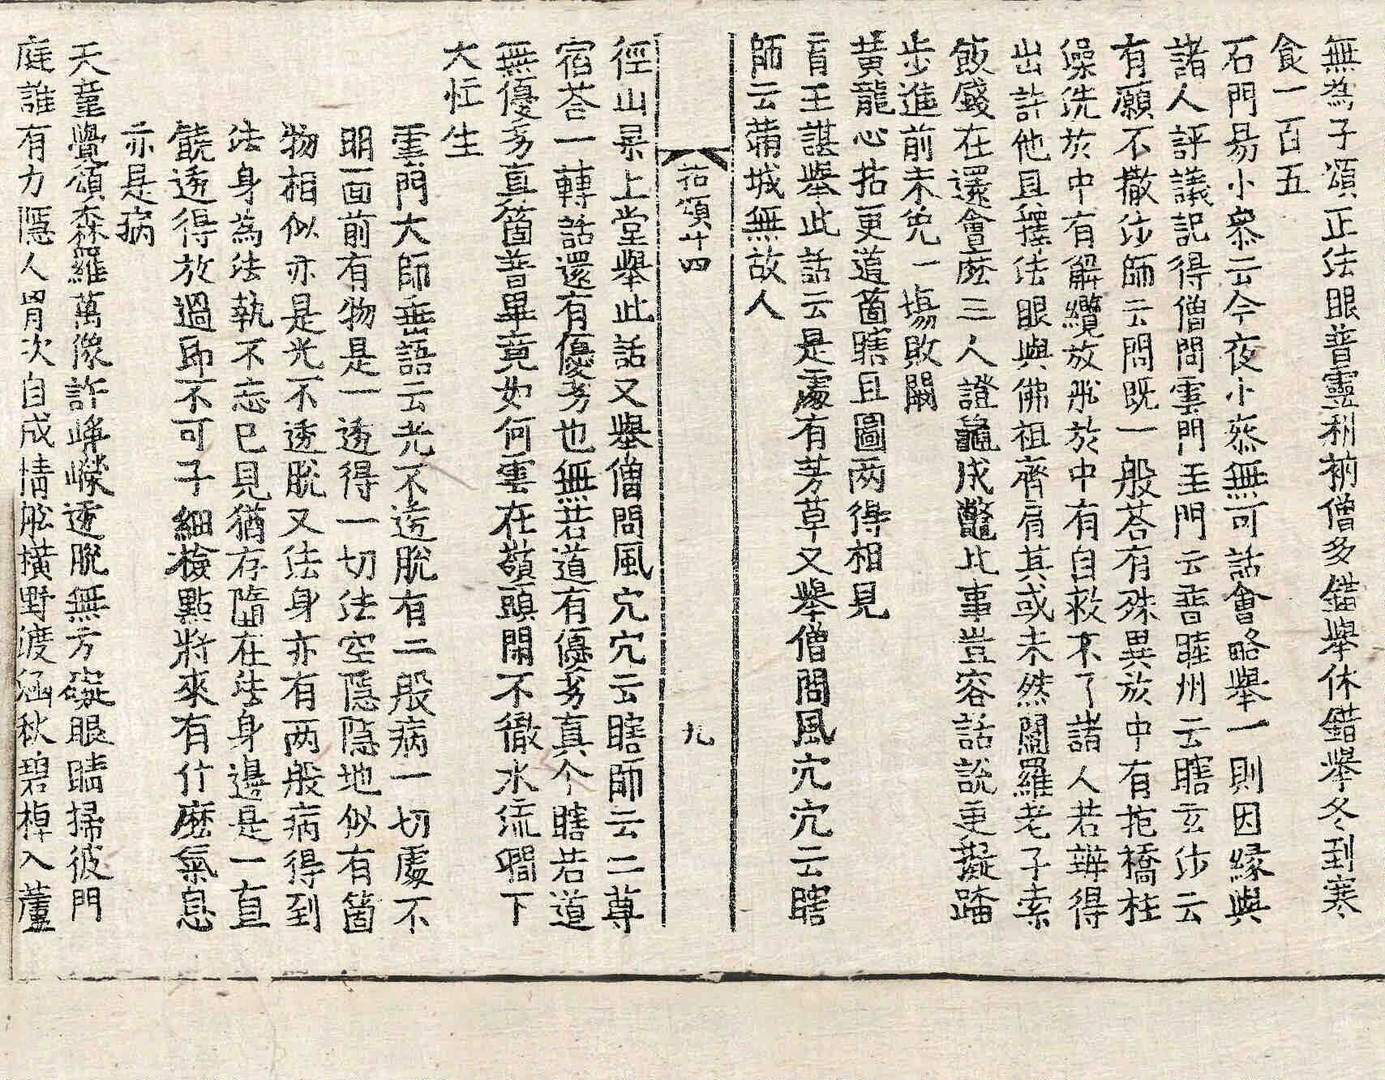 無為子頌正法眼普靈利衲僧多錯舉休錯舉冬到寒
食一百五
石門易小叅云今夜小叅無可話會略舉一則因縁與
諸人評議記得僧問雲門至門云普睦州云瞎玄沙云
有願不撒沙師云問既一般荅有殊異於中有拖橋柱
澡洗於中有解纜放舡於中有自救不了諸人若辨得
出許他具擇法眼與佛祖齊肩其或未然閻羅老子索
飯錢在還會麽三人證龜成鼈此事豈容話說更擬踏
步進前未免一場敗闕
黄龍心拈更道箇瞎且圖两得相見
育王諶舉此話云是處有芳草又舉僧問風穴穴云瞎
師云滿城無故人
拈頌十四
九
徑山杲上堂舉此話又舉僧問風穴穴云瞎師云二尊
宿荅一轉話還有優劣也無若道有優劣真个瞎若道
無優劣真箇普畢竟如何雲在嶺頭閑不徹水流㵎下
大忙生
雲門大師垂語云光不透脫有二般病一切處不
明面前有物是一透得一切法空隱隱地似有箇
物相似亦是光不透脫又法身亦有两般病得到
法身為法執不忘已見猶存隨在法身邊是一直
饒透得放過即不可子細檢點將來有什麽氣息
亦是病
天童覺頌森羅萬像許崢嶸透脫無方礙眼睛掃彼門
庭誰有力隱人胷次自成情舡橫野渡涵秋碧棹入蘆